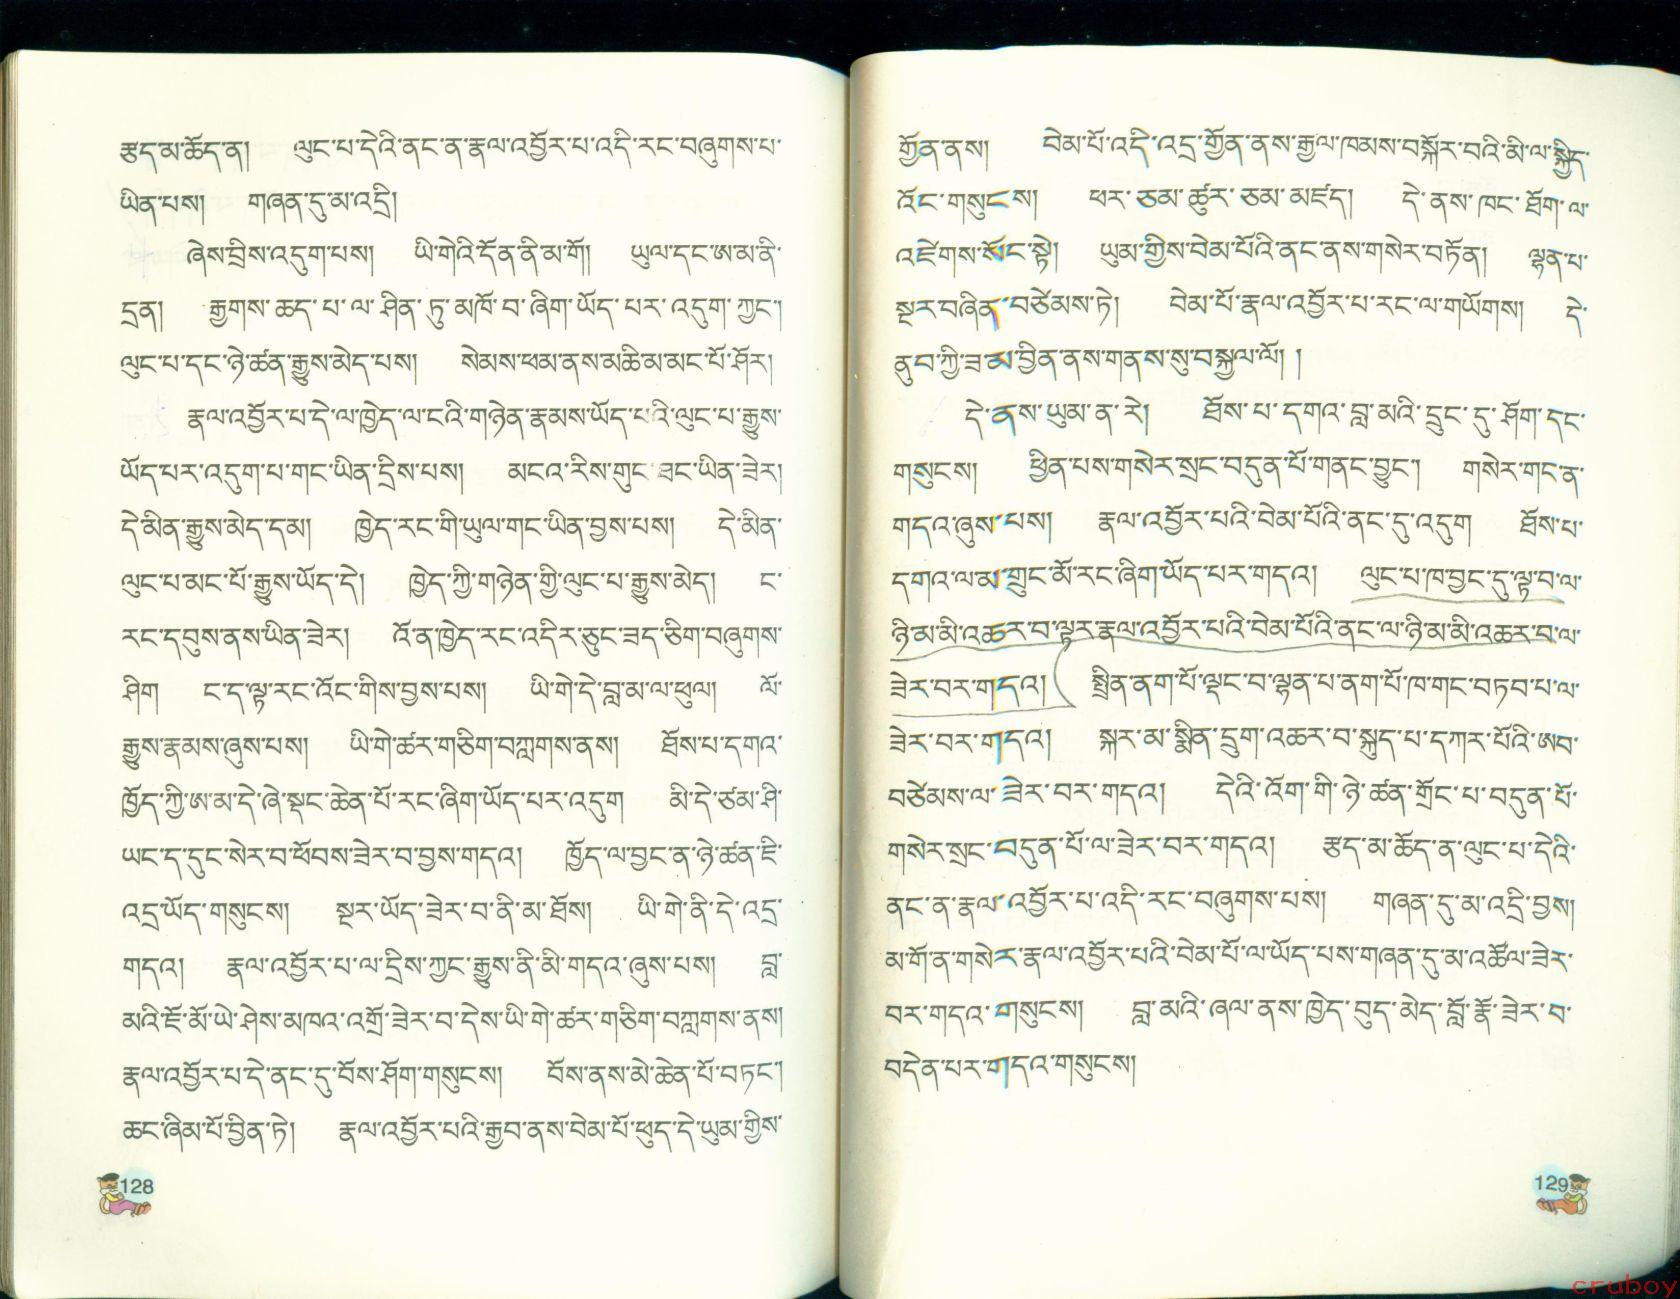 རྩད་མ་ཆོད་ན། ལུང་པ་དེའི་ནང་ན་རྣལ་འབྱོར་པ་འདི་རང་བཞུགས་པ་
ཡིན་པས། གཞན་དུ་མ་འདྲི།
ཞེས་བྲིས་འདུག་པས། ཡི་གེའི་དོན་ནི་མ་གོ། ཡུལ་དང་ཨ་མ་ནི་
དྲན། རྒྱགས་ཆད་པ་ལ་ཤིན་ཏུ་མཁོ་བ་ཞིག་ཡོད་པར་འདུག་ཀྱང་།
ལུང་པ་དང་ཉེ་ཚན་རྒྱུས་མེད་པས། སེམས་ཕམ་ནས་མཆི་མ་མང་པོ་ཤོར།
རྣལ་འབྱོར་པ་དེ་ལ་ཁྱེད་ལ་ངའི་གཉེན་རྣམས་ཡོད་པའི་ལུང་པ་རྒྱུས་
ཡོད་པར་འདུག་པ་གང་ཡིན་དྲིས་པས། མངའ་རིས་གུང་ཐང་ཡིན་ཟེར།
དེ་མིན་རྒྱུས་མེད་དམ། ཁྱེད་རང་གི་ཡུལ་གང་ཡིན་བྱས་པས། དེ་མིན་
ལུང་པ་མང་པོ་རྒྱུས་ཡོད་དེ། ཁྱེད་ཀྱི་གཉེན་གྱི་ལུང་པ་རྒྱུས་མེད། ང་
རང་དབུས་ནས་ཡིན་ཟེར། འོ་ན་ཁྱེད་རང་འདིར་ཅུང་ཟད་ཅིག་བཞུགས་
ཤིག ང་ད་ལྟ་རང་འོང་གིས་བྱས་པས། ཡི་གེ་དེ་བླ་མ་ལ་ཕུལ། ལོ་
རྒྱུས་རྣམས་ཞུས་པས། ཡི་གེ་ཚར་གཅིག་བཀླགས་ནས། ཐོས་པ་དགའ་
ཁྱོད་ཀྱི་ཨ་མ་དེ་ཞེ་སྡང་ཆེན་པོ་རང་ཞིག་ཡོད་པར་འདུག མི་དེ་ཙམ་ཤི་
ཡང་ད་དུང་སེར་བ་ཕོབས་ཟེར་བ་བྱས་གདའ། ཁྱོད་ལ་བྱང་ན་ཉེ་ཚན་ཇི་
འདྲ་ཡོད་གསུངས། སྔར་ཡོད་ཟེར་བ་ནི་མ་ཐོས། ཡི་གེ་ནི་དེ་འདྲ་
གདའ། རྣལ་འབྱོར་པ་ལ་དྲིས་ཀྱང་རྒྱུས་ནི་མི་གདའ་ཞུས་པས། བླ་
མའི་ཇོ་མོ་ཡེ་ཤེས་མཁའ་འགྲོ་ཟེར་བ་དེས་ཡི་གེ་ཚར་གཅིག་བཀླགས་ནས།
རྣལ་འབྱོར་པ་དེ་ནང་དུ་བོས་ཤོག་གསུངས། བོས་ནས་མེ་ཆེན་པོ་བཏང་།
ཆང་ཞིམ་པོ་བྱིན་ཏེ། རྣལ་འབྱོར་པའི་རྒྱབ་ནས་བེམ་པོ་ཕུད་དེ་ཡུམ་གྱིས་
128
གྱོན་ནས། བེམ་པོ་འདི་འདྲ་གྱོན་ནས་རྒྱལ་ཁམས་བསྐོར་བའི་མི་ལ་སྐྱིད་
འོང་གསུངས། ཕར་ཙམ་ཚུར་ཙམ་མཛད། དེ་ནས་ཁང་ཐོག་ལ་
འཛེགས་སོང་སྟེ། ཡུམ་གྱིས་བེམ་པོའི་ནང་ནས་གསེར་བཏོན། ལྷན་པ་
སྔར་བཞིན་བཙེམས་ཏེ། བེམ་པོ་རྣལ་འབྱོར་པ་རང་ལ་གཡོགས། དེ་
ནུབ་ཀྱི་ཟ་མ་བྱིན་ནས་གནས་སུ་བསྐྱལ་ལོ། །
དེ་ནས་ཡུམ་ན་རེ། ཐོས་པ་དགའ་བླ་མའི་དྲུང་དུ་ཤོག་དང་
གསུངས། ཕྱིན་པས་གསེར་སྲང་བདུན་པོ་གནང་བྱུང་། གསེར་གང་ན་
གདའ་ཞུས་པས། རྣལ་འབྱོར་པའི་བེམ་པོའི་ནང་དུ་འདུག ཐོས་པ་
དགའ་ལ་མ་གྲུང་མོ་རང་ཞིག་ཡོད་པར་གདའ། ལུང་པ་ཁ་བྱང་དུ་ལྟ་བ་ལ་
ཉི་མ་མི་འཆར་བ་ལྟར་རྣལ་འབྱོར་པའི་བེམ་པོའི་ནང་ལ་ཉི་མ་མི་འཆར་བ་ལ་
ཟེར་བར་གདའ། སྤྲིན་ནག་པོ་ལྡང་བ་ལྷན་པ་ནག་པོ་ཁ་གང་བཏབ་པ་ལ་
ཟེར་བར་གདའ། སྐར་མ་སྨིན་དྲུག་འཆར་བ་སྐུད་པ་དཀར་པོའི་ཨབ་
བཙེམས་ལ་ཟེར་བར་གདའ། དེའི་འོག་གི་ཉེ་ཚན་གྲོང་པ་བདུན་པོ་
གསེར་སྲང་བདུན་པོ་ལ་ཟེར་བར་གདའ། རྩད་མ་ཆོད་ན་ལུང་པ་དེའི་
ནང་ན་རྣལ་འབྱོར་པ་འདི་རང་བཞུགས་པས། གཞན་དུ་མ་འདྲི་བྱས།
མ་གོ་ན་གསེར་རྣལ་འབྱོར་པའི་བེམ་པོ་ལ་ཡོད་པས་གཞན་དུ་མ་འཚོལ་ཟེར་
བར་གདའ་གསུངས། བླ་མའི་ཞལ་ནས་ཁྱེད་བུད་མེད་བློ་རྣོ་ཟེར་བ་
བདེན་པར་གདའ་གསུངས།
129
cruboy